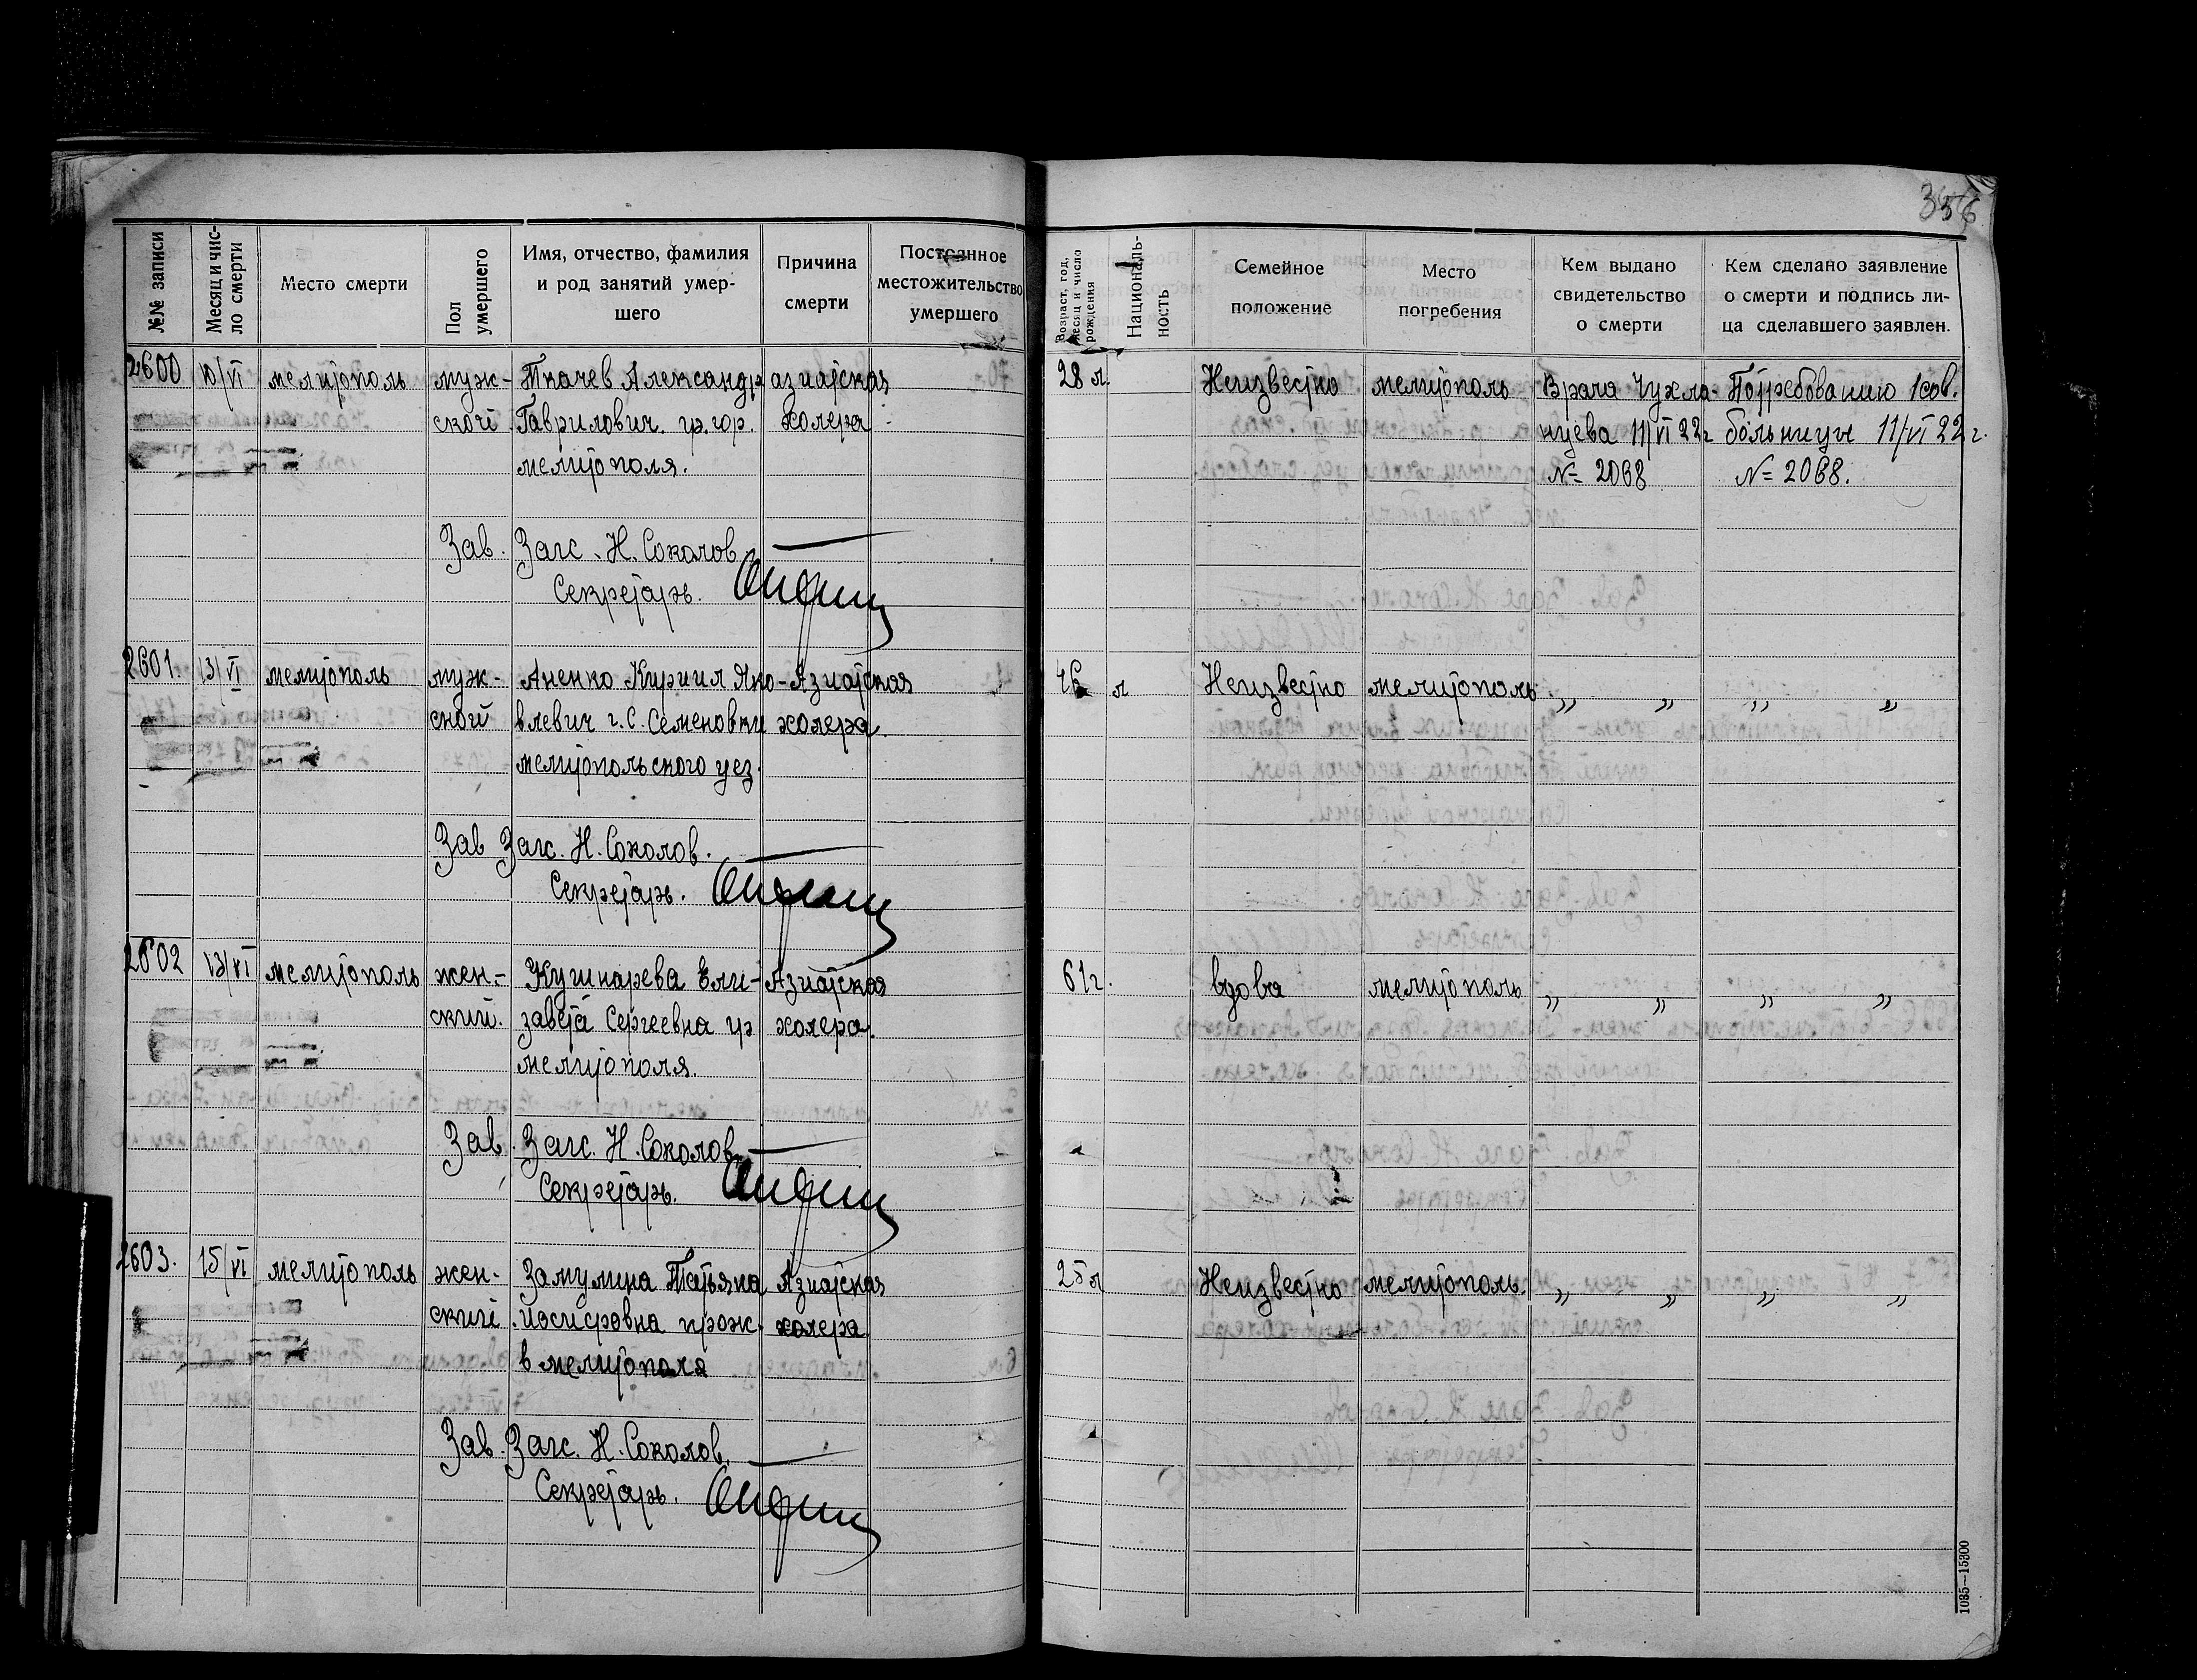 336
№№ записи
Месяц и чис-
ло смерти
Место смерти
Пол
умершего
Имя, отчество, фамилия
и род занятий умер-
шего
Причина
смерти
Постоянное
местожительство
умершего
Возраст, год,
месяц и число
рождения
Националь-
ность
Семейное
положение
Место
погребения
Кем выдано
свидетельство
о смерти
Кем сделано заявление
о смерти и подпись ли-
ца сделавшего заявлен.
2600 10/VI мелитополь муж- Ткачев Александр азиатская 28 л. Неизвестно мелитополь Врача Чухла- По требованию 1 сов.
ской Гаврилович. гр. гор. холера нцева 11/VI 22 г больницы 11/VI 22 г.
мелитополя. № 2068 № 2068.
Зав. Загс. Н. Соколов
Секретарь.
2601. 13/VI мелитополь муж- Аненко Кирил Яко- Азиатская л Неизвестно мелитополь „ „ „ „
ской влевич г. с. Семеновки холера.
мелитопольского уез.
Зав Загс. Н. Соколов.
Секретарь.
2602 13/VI мелитополь жен- Кушнарева Ели- Азиатская 61 г. вдова мелитополь „ „ „ „
ский. завета Сергеевна гр холера.
мелитополя.
Зав. Загс. Н. Соколов
Секретарь.
2603. 15/VI мелитополь жен- Замулина Татьяна Азиатская 25 л Неизвестно мелитополь. „ „ „ „
ский. иосифовна прож. холера
в мелитополя
Зав. Загс. Н. Соколов.
Секретарь.
1035—15300